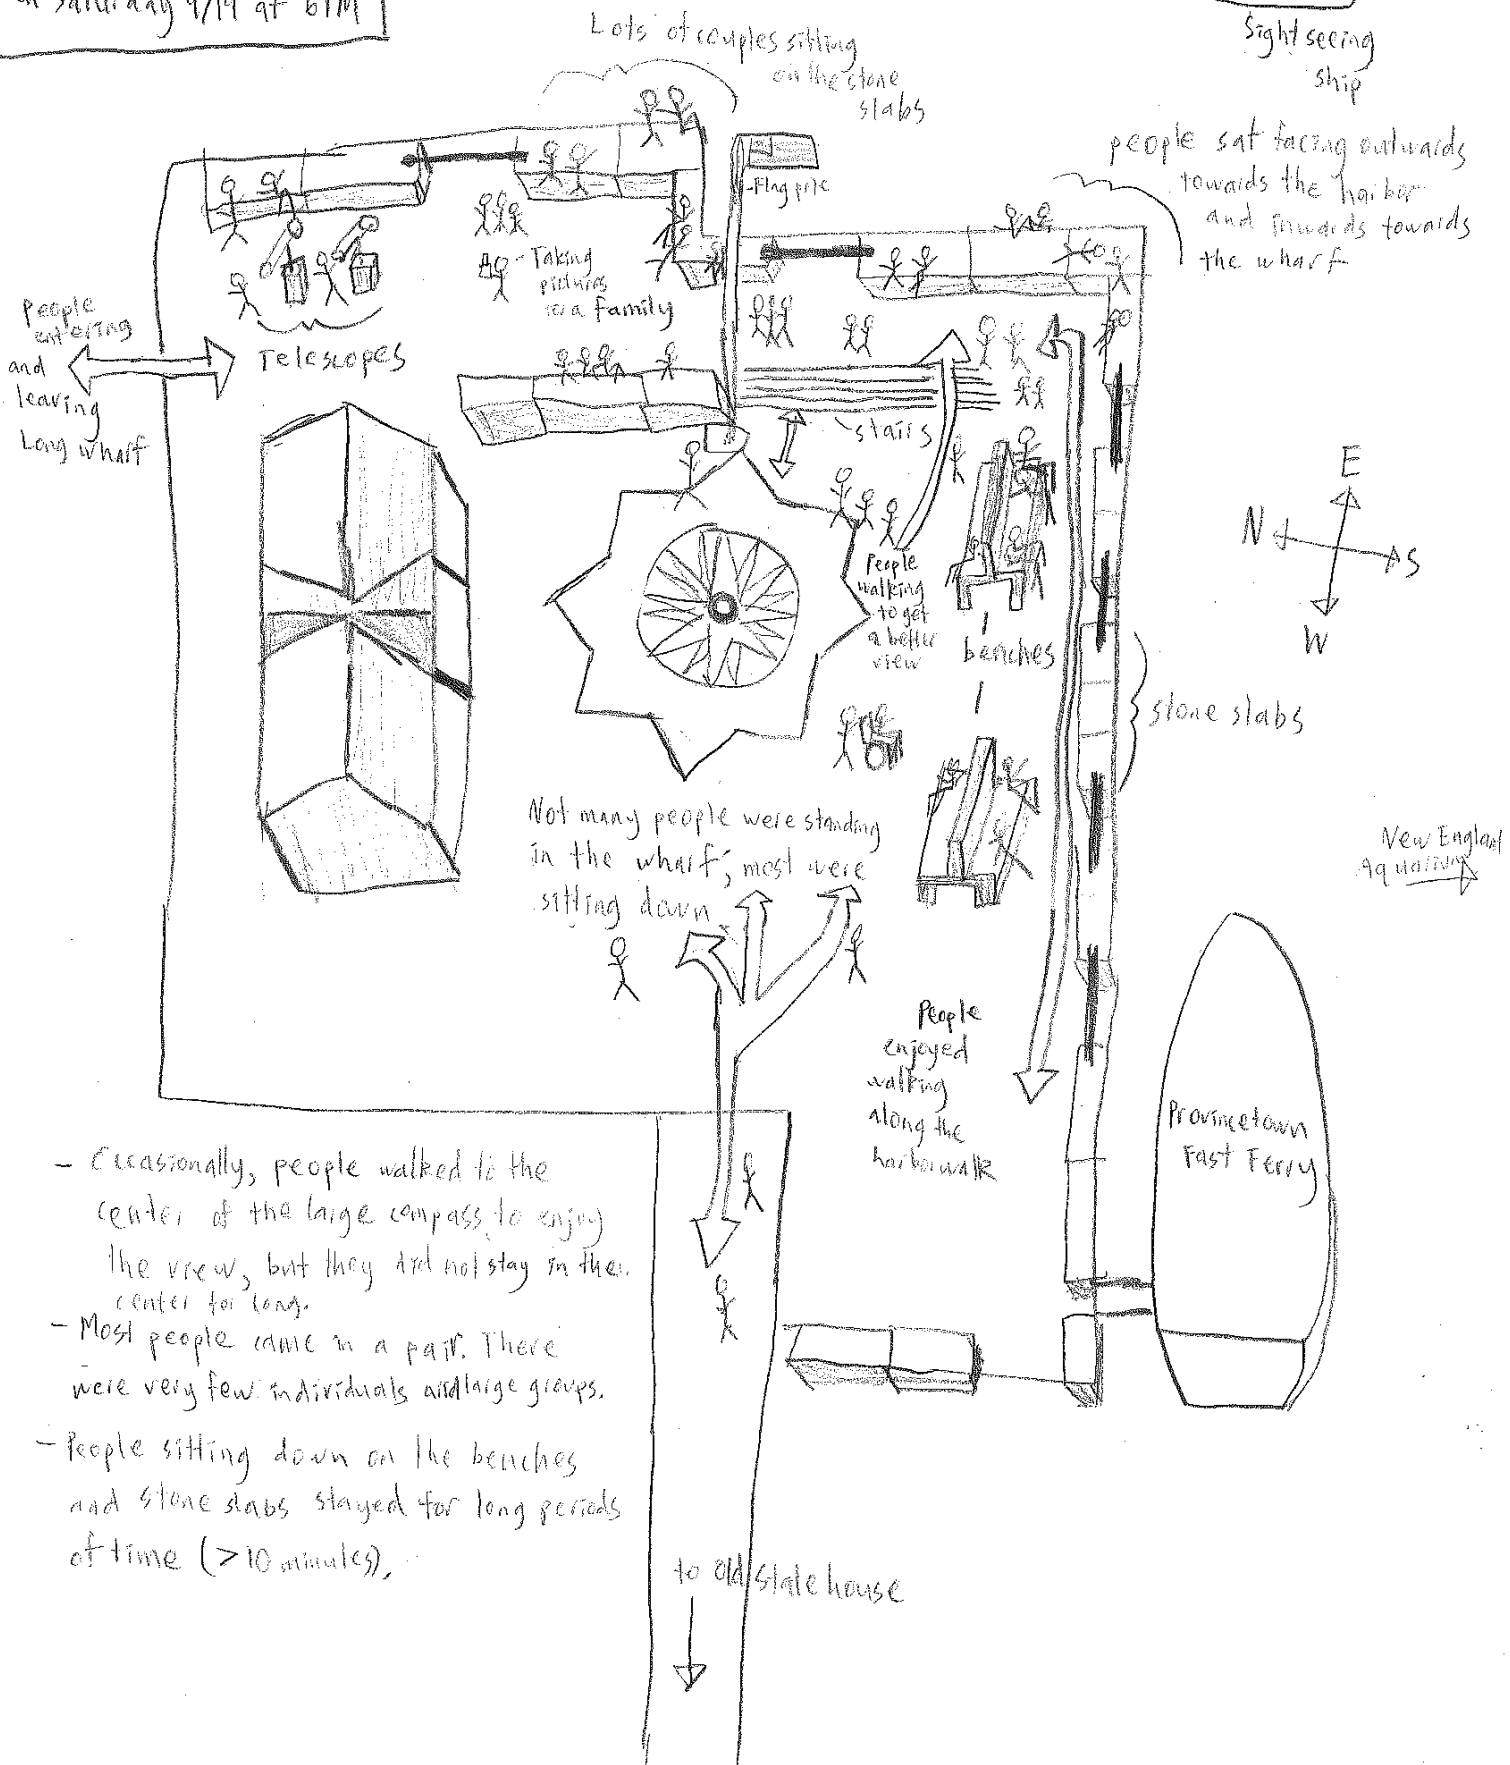 on Saturday 9/14 at 6PM
Lots of couples sitting
on the stone
slabs
Sightseeing
ship
people sat facing outwards
towards the harbor
and inwards towards
the wharf
-Flag pole
-Taking
pictures
for a family
People
entering
and
leaving
Long wharf
Telescopes
-stairs
E
N
S
W
People
walking
to get
a better
view
benches
stone slabs
Not many people were standing
in the wharf; most were
sitting down
New England
Aquarium
People
enjoyed
walking
along the
harborwalk
Provincetown
Fast Ferry
- Occasionally, people walked to the
center of the large compass to enjoy
the view, but they did not stay in the
center for long.
- Most people came in a pair. There
were very few individuals and large groups.
- People sitting down on the benches
and stone slabs stayed for long periods
of time (>10 minutes).
to old state house